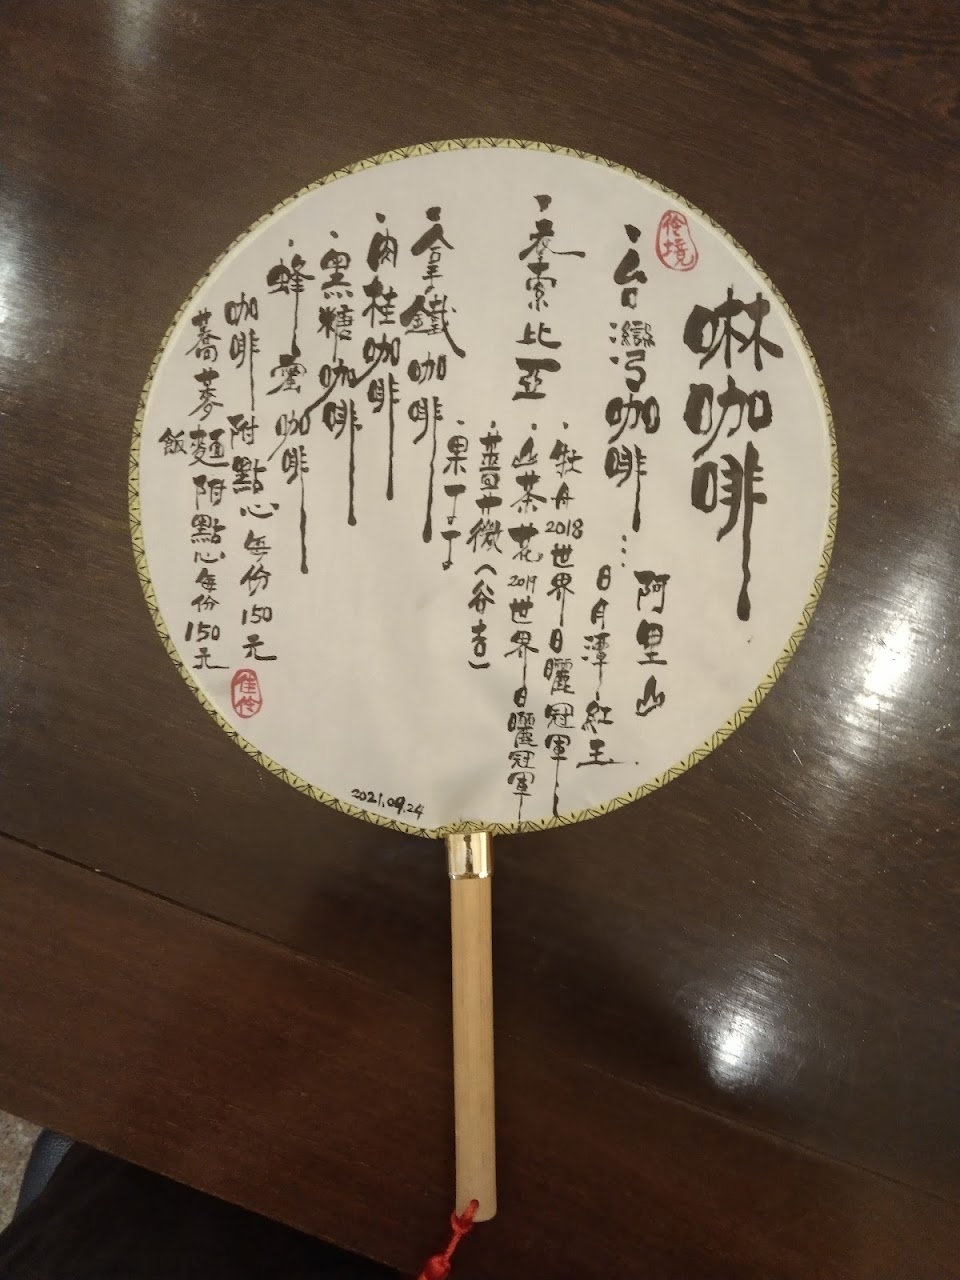 啉咖啡
伶境
台灣咖啡…阿里山
日月潭紅玉
衣索比亞
牡丹2018世界日曬冠軍
山茶花2019世界日曬冠軍
薔薇(谷吉)
果丁丁
拿鐵咖啡
肉桂咖啡
黑糖咖啡
蜂蜜咖啡
咖啡附點心每份150元
蕎麥麵附點心每份150元
飯
佳伶
2021.09.24